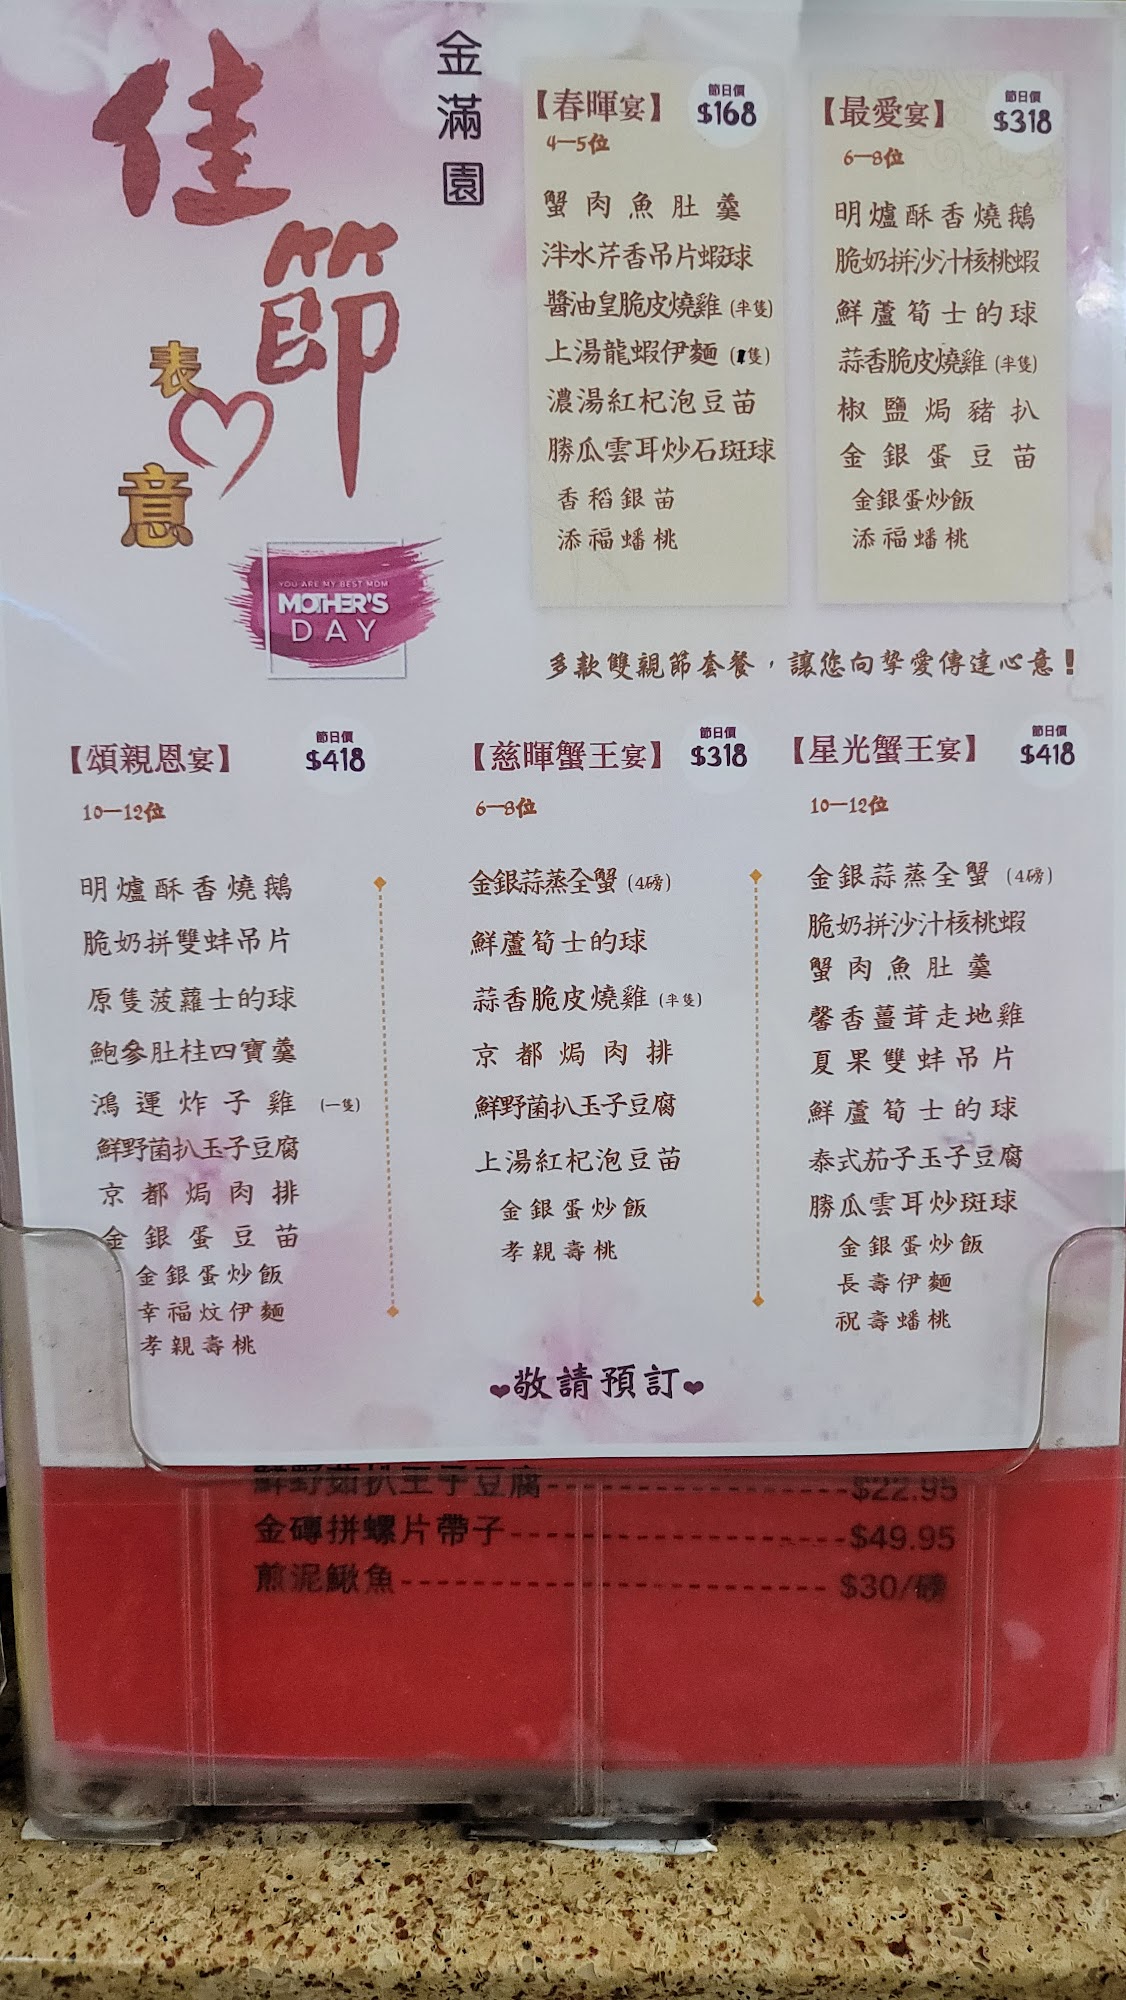 佳節
表
意
金滿園
YOU ARE MY BEST MOM
MOTHER'S
DAY
【春暉宴】
節日價
$168
4—5位
蟹肉魚肚羹
泮水芹香吊片蝦球
醬油皇脆皮燒雞 (半隻)
上湯龍蝦伊麵 (1隻)
濃湯紅杞泡豆苗
勝瓜雲耳炒石斑球
香稻銀苗
添福蟠桃
【最愛宴】
節日價
$318
6—8位
明爐酥香燒鵝
脆奶拼沙汁核桃蝦
鮮蘆筍士的球
蒜香脆皮燒雞 (半隻)
椒鹽焗豬扒
金銀蛋豆苗
金銀蛋炒飯
添福蟠桃
多款雙親節套餐，讓您向摯愛傳達心意！
【頌親恩宴】
節日價
$418
10—12位
明爐酥香燒鵝
脆奶拼雙蚌吊片
原隻菠蘿士的球
鮑參肚柱四寶羹
鴻運炸子雞 (一隻)
鮮野菌扒玉子豆腐
京都焗肉排
金銀蛋豆苗
金銀蛋炒飯
幸福炆伊麵
孝親壽桃
【慈暉蟹王宴】
節日價
$318
6—8位
金銀蒜蒸全蟹 (4磅)
鮮蘆筍士的球
蒜香脆皮燒雞 (半隻)
京都焗肉排
鮮野菌扒玉子豆腐
上湯紅杞泡豆苗
金銀蛋炒飯
孝親壽桃
【星光蟹王宴】
節日價
$418
10—12位
金銀蒜蒸全蟹 (4磅)
脆奶拼沙汁核桃蝦
蟹肉魚肚羹
馨香薑茸走地雞
夏果雙蚌吊片
鮮蘆筍士的球
泰式茄子玉子豆腐
勝瓜雲耳炒斑球
金銀蛋炒飯
長壽伊麵
祝壽蟠桃
❤敬請預訂❤
鮮野茹扒玉子豆腐------------------$22.95
金磚拼螺片帶子--------------------$49.95
煎泥鰍魚-------------------------- $30/磅